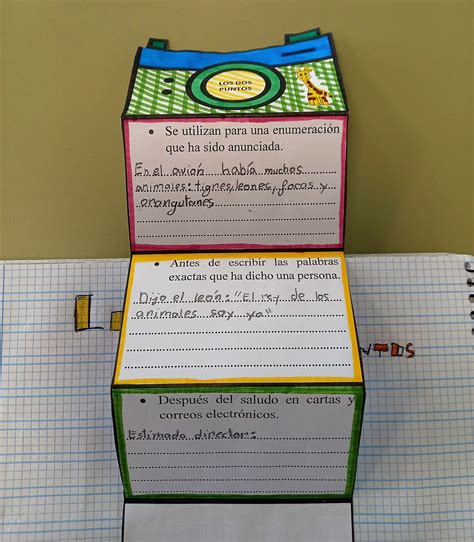 LOS DOS
PUNTOS
• Se utilizan para una enumeración
que ha sido anunciada.
En el avión había muchos
animales: tigres, leones, focas y
orangutanes
• Antes de escribir las palabras
exactas que ha dicho una persona.
Dijo el león: "El rey de los
animales soy yo"
• Después del saludo en cartas y
correos electrónicos.
Estimado director: